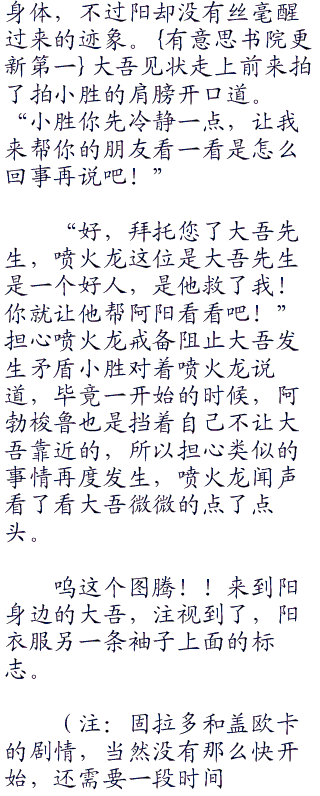 身体，不过阳却没有丝毫醒
过来的迹象。{有意思书院更
新第一}大吾见状走上前来拍
了拍小胜的肩膀开口道。
“小胜你先冷静一点，让我
来帮你的朋友看一看是怎么
回事再说吧！”
“好，拜托您了大吾先
生，喷火龙这位是大吾先生
是一个好人，是他救了我！
你就让他帮阿阳看看吧！”
担心喷火龙戒备阻止大吾发
生矛盾小胜对着喷火龙说
道，毕竟一开始的时候，阿
勃梭鲁也是挡着自己不让大
吾靠近的，所以担心类似的
事情再度发生，喷火龙闻声
看了看大吾微微的点了点
头。
呜这个图腾！！来到阳
身边的大吾，注视到了，阳
衣服另一条袖子上面的标
志。
（注：固拉多和盖欧卡
的剧情，当然没有那么快开
始，还需要一段时间